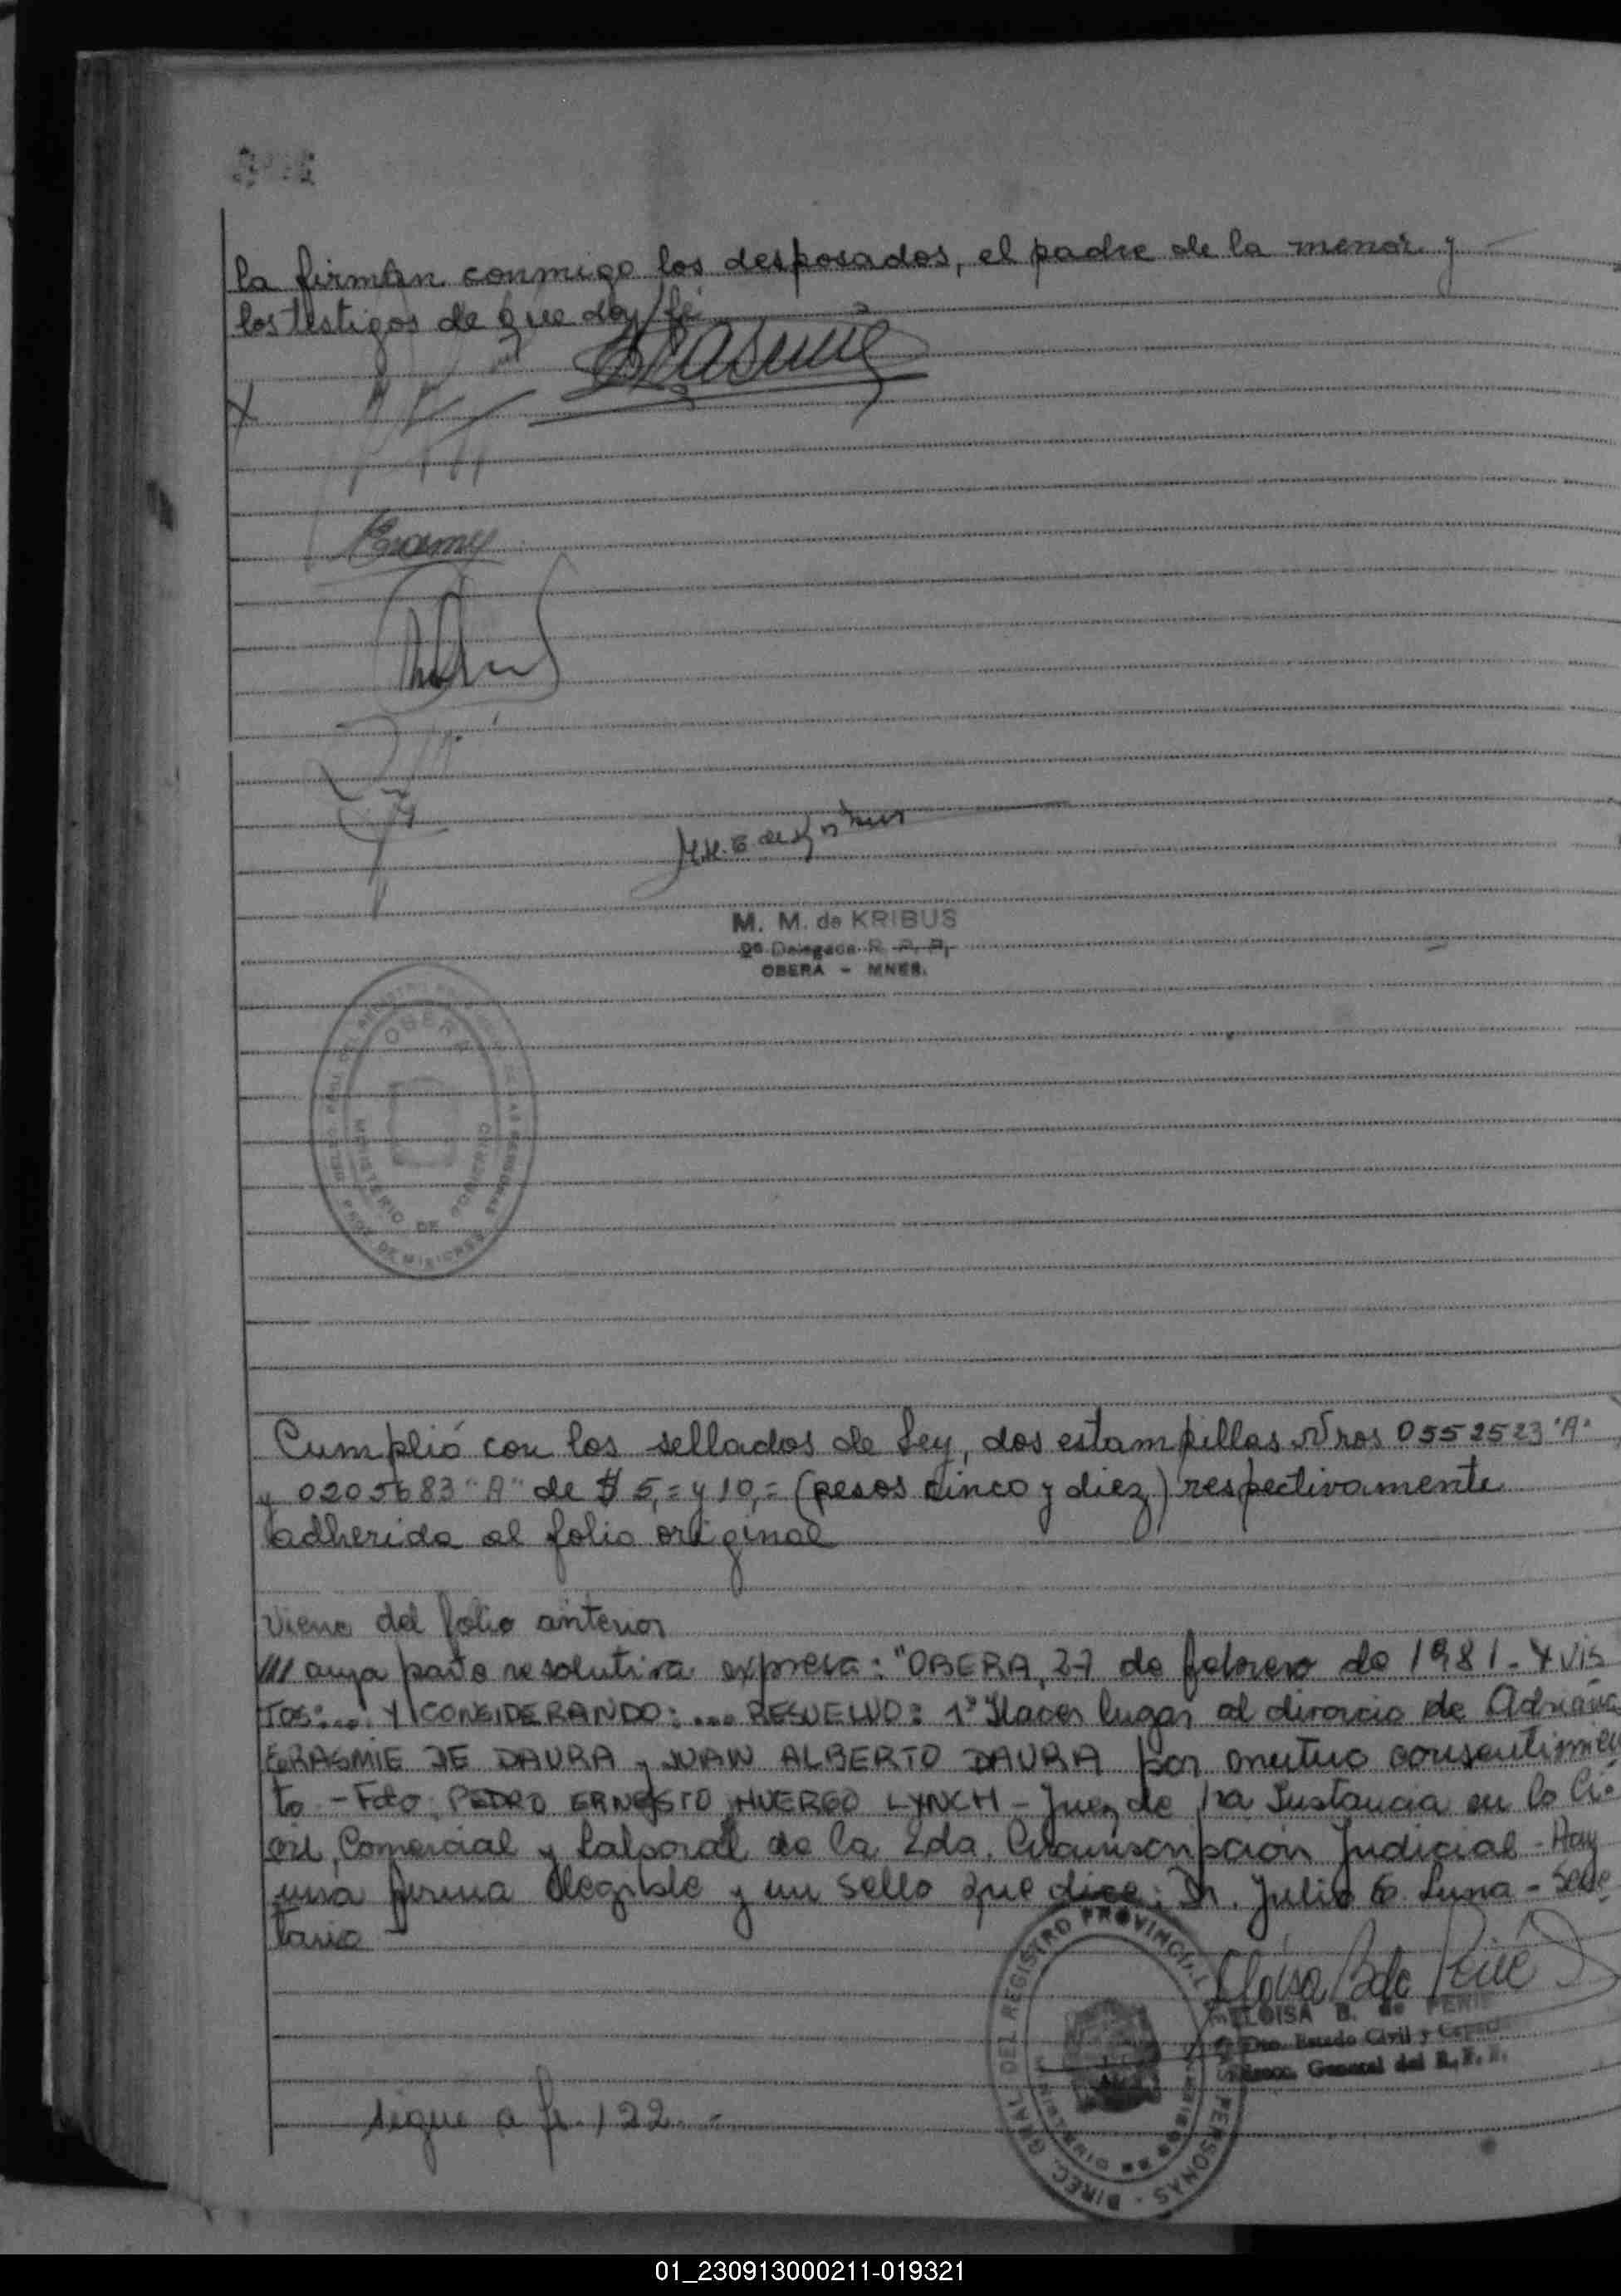 la firman conmigo los desposados, el padre de la menor y
los testigos de que doy fé
M. M. de KRIBUS
2ª Delegada R. P. P.
OBERA - MNES.
OBERA
MINISTERIO DE GOBIERNO
PROV. DE MISIONES
Cumplió con los sellados de Ley, dos estampillas Nros 0552523 "A"
y 0205683 "A" de $ 5,= y 10,= (pesos cinco y diez) respectivamente
adherida al folio original
Viene del folio anterior
/// cuya parte resolutiva expresa: "OBERA, 27 de febrero de 1981.- Y VIS
TOS:... Y CONSIDERANDO:... RESUELVO: 1º Hacer lugar al divorcio de Adriana
ERASMIE DE DAURA y JUAN ALBERTO DAURA por mutuo consentimien
to - Fdo: PEDRO ERNESTO HUERGO LYNCH - Juez de 1ra Instancia en lo Ci-
vil, Comercial y Laboral de la 2da. Circunscripción Judicial - Hay
una firma ilegible y un sello que dice: Dr. Julio E. Luna - Secre
tario
Eloisa B de Perié
ELOISA B. de PERIE
Dto. Estado Civil y Capacidad
Direcc. General del R. P. P.
DIREC. GRAL. DEL REGISTRO PROVINCIAL PERSONAS
sigue a fs. 122.-
01_230913000211-019321